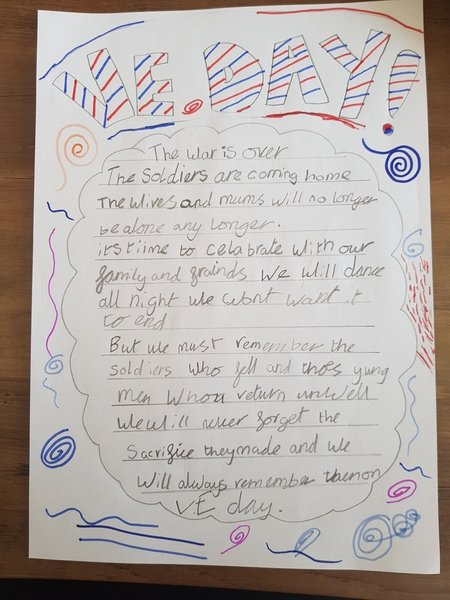 VE.DAY!
The war is over
The Soldiers are coming home
The Wives and mums will no longer
be alone any longer.
its tiime to celabrate with our
family and frainds we will dance
all night we wont want it
to end
But we must remember the
soldiers who fell and thoes yung
men whon return unwell
we will never forget the
Sacrifice they made and we
will always remember themon
VE day.